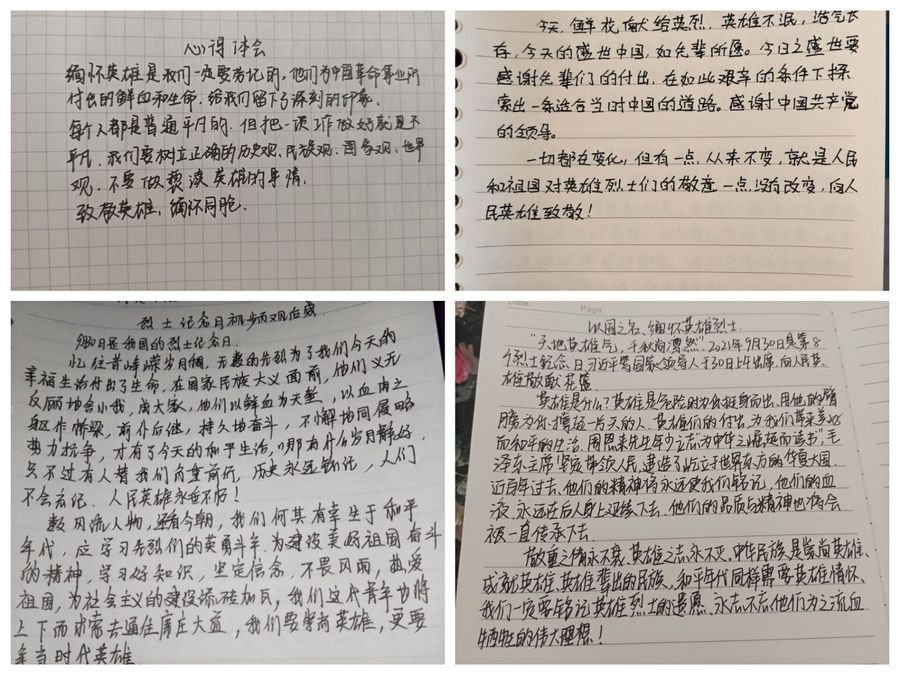 心得体会
缅怀英雄是我们一定要考记的,他们为中国革命事业所
付出的鲜血和生命,给我们留下了深刻的印象.
每个人都是普通平凡的.但把一项工作做好就是不
平凡.我们要树立正确的历史观、民族观、国家观、世界
观.不要做亵渎英雄的事情.
致敬英雄,缅怀同胞.
今天,鲜花献给英烈,英雄不泯,浩气长
存,今天的盛世中国,如先辈所愿。今日之盛世要
感谢先辈们的付出,在如此艰辛的条件下探
索出一条适合当时中国的道路。感谢中国共产党
的领导。
一切都在变化,但有一点,从来不变,就是人民
和祖国对英雄烈士们的敬意一点没有改变,向人
民英雄致敬!
烈士纪念日视频观后感
9月30日是我国的烈士纪念日.
忆往昔峥嵘岁月稠,无数的先烈为了我们今天的
幸福生活付出了生命,在国家民族大义面前,他们义无
反顾地舍小我,成大家,他们以鲜血为天堑,以血肉之
躯作桥梁,前仆后继,持久地奋斗,不懈协同侵略
势力抗争,才有了今天的和平生活,哪有什么岁月静好,
只不过有人替我们负重前行,历史永远铭记,人们
不会忘记.人民英雄永垂不朽!
数风流人物,还看今朝,我们何其有幸生于和平
年代,应学习先烈们的英勇斗争.为建设美好祖国奋斗
的精神,学习好知识,坚定信念,不畏风雨,热爱
祖国,为社会主义的建设添砖加瓦,我们这代青年也将
上下而求索去通往席庄大益,我们要崇尚英雄,更要
争当时代英雄.
Date.
Page.
以国之名、缅怀英雄烈士.
"天地英雄气,千秋尚凛然"2021年9月30日是第8
个烈士纪念日,习近平等国家领导人于30日上午出席,向人民英
雄敬献花篮
英雄是什么?英雄是危险时为你挺身而出,用他的臂
膀为你撑起一片天的人,英雄们的付出,为我们带来美好
而和平的生活,周恩来先生年少立志"为中华之崛起而读书",毛
泽东主席坚定带领人民,建造了屹立于世界东方的华夏大国.
近百年过去,他们的精神将永远使我们铭记,他们的血
液,永远在后人身上延续下去.他们的品质与精神也将会
被一直传承下去.
敬重之情永不衰,英雄之志永不灭,中华民族是崇尚英雄、
成就英雄、英雄辈出的民族,和平年代同样需要英雄情怀、
我们一定要铭记英雄烈士的遗愿,永志不忘他们为之流血
牺牲的伟大理想!